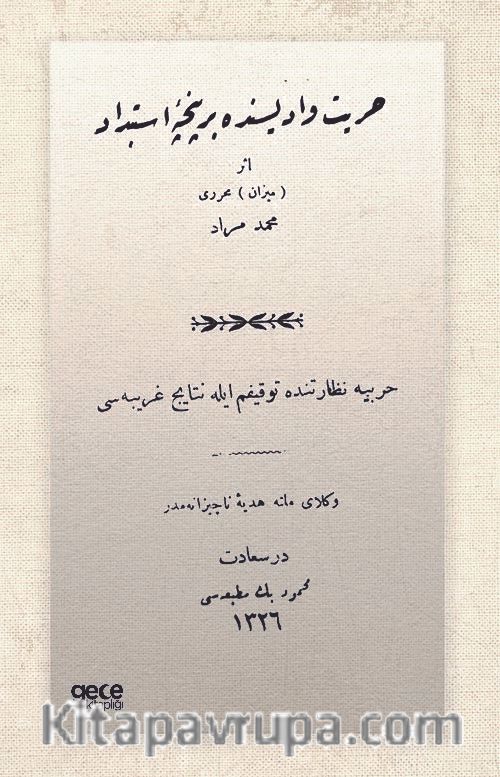 حريت واديسنده بر پنجهٔ استبداد
اثر
( ميزان ) محررى
محمد مراد
حربيه نظارتنده توقيفم ايله نتايج غريبه‌سى
وكلاى ملته هديهٔ ناچيزانه‌مدر
درسعادت
محمود بك مطبعه‌سى
١٣٢٦
gece
kitaplığı
Kitapavrupa.com